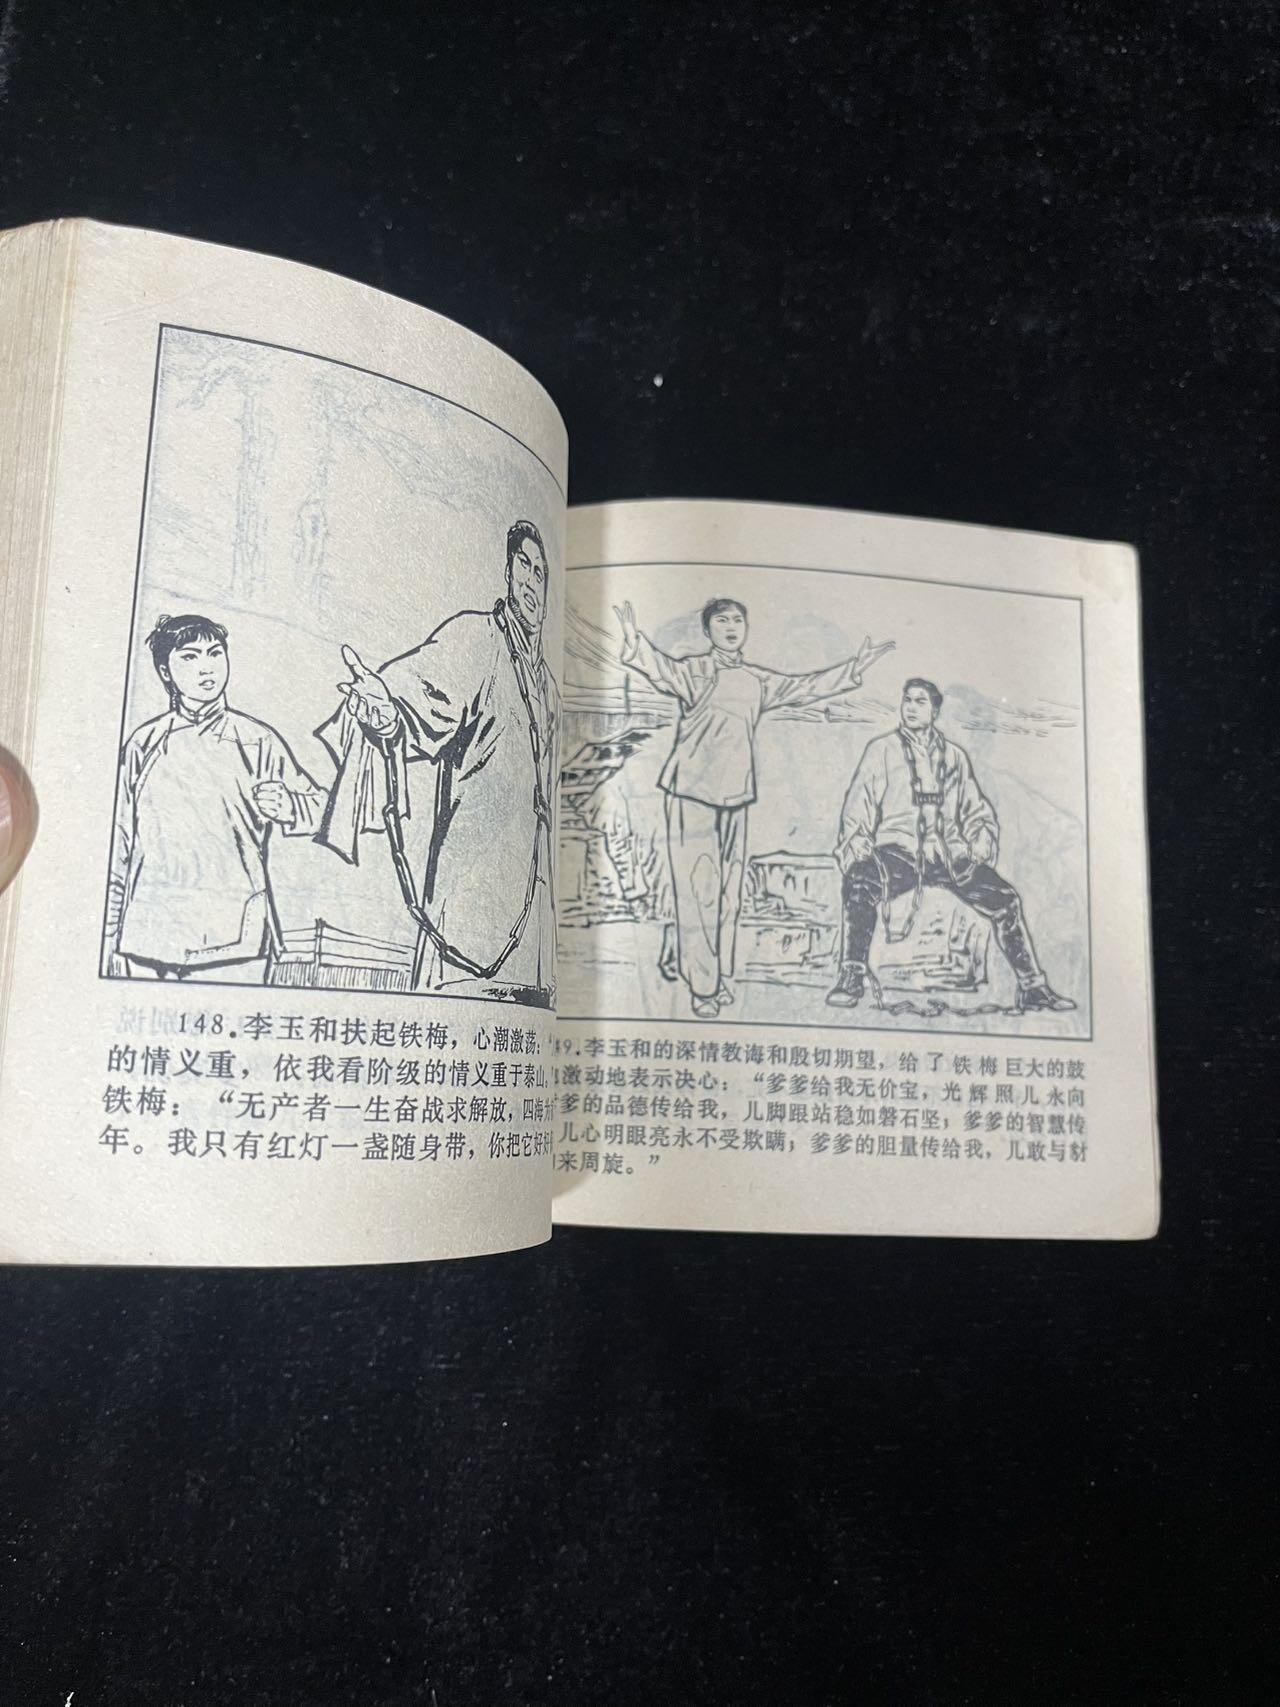 148.李玉和扶起铁梅，心潮激荡：“
的情义重，依我看阶级的情义重于泰山。
铁梅：“无产者一生奋战求解放，四海为
年。我只有红灯一盏随身带，你把它好好
9.李玉和的深情教诲和殷切期望，给了铁梅巨大的鼓
激动地表示决心：“爹爹给我无价宝，光辉照儿永向
爹的品德传给我，儿脚跟站稳如磐石坚；爹爹的智慧传
儿心明眼亮永不受欺瞒；爹爹的胆量传给我，儿敢与豺
来周旋。”